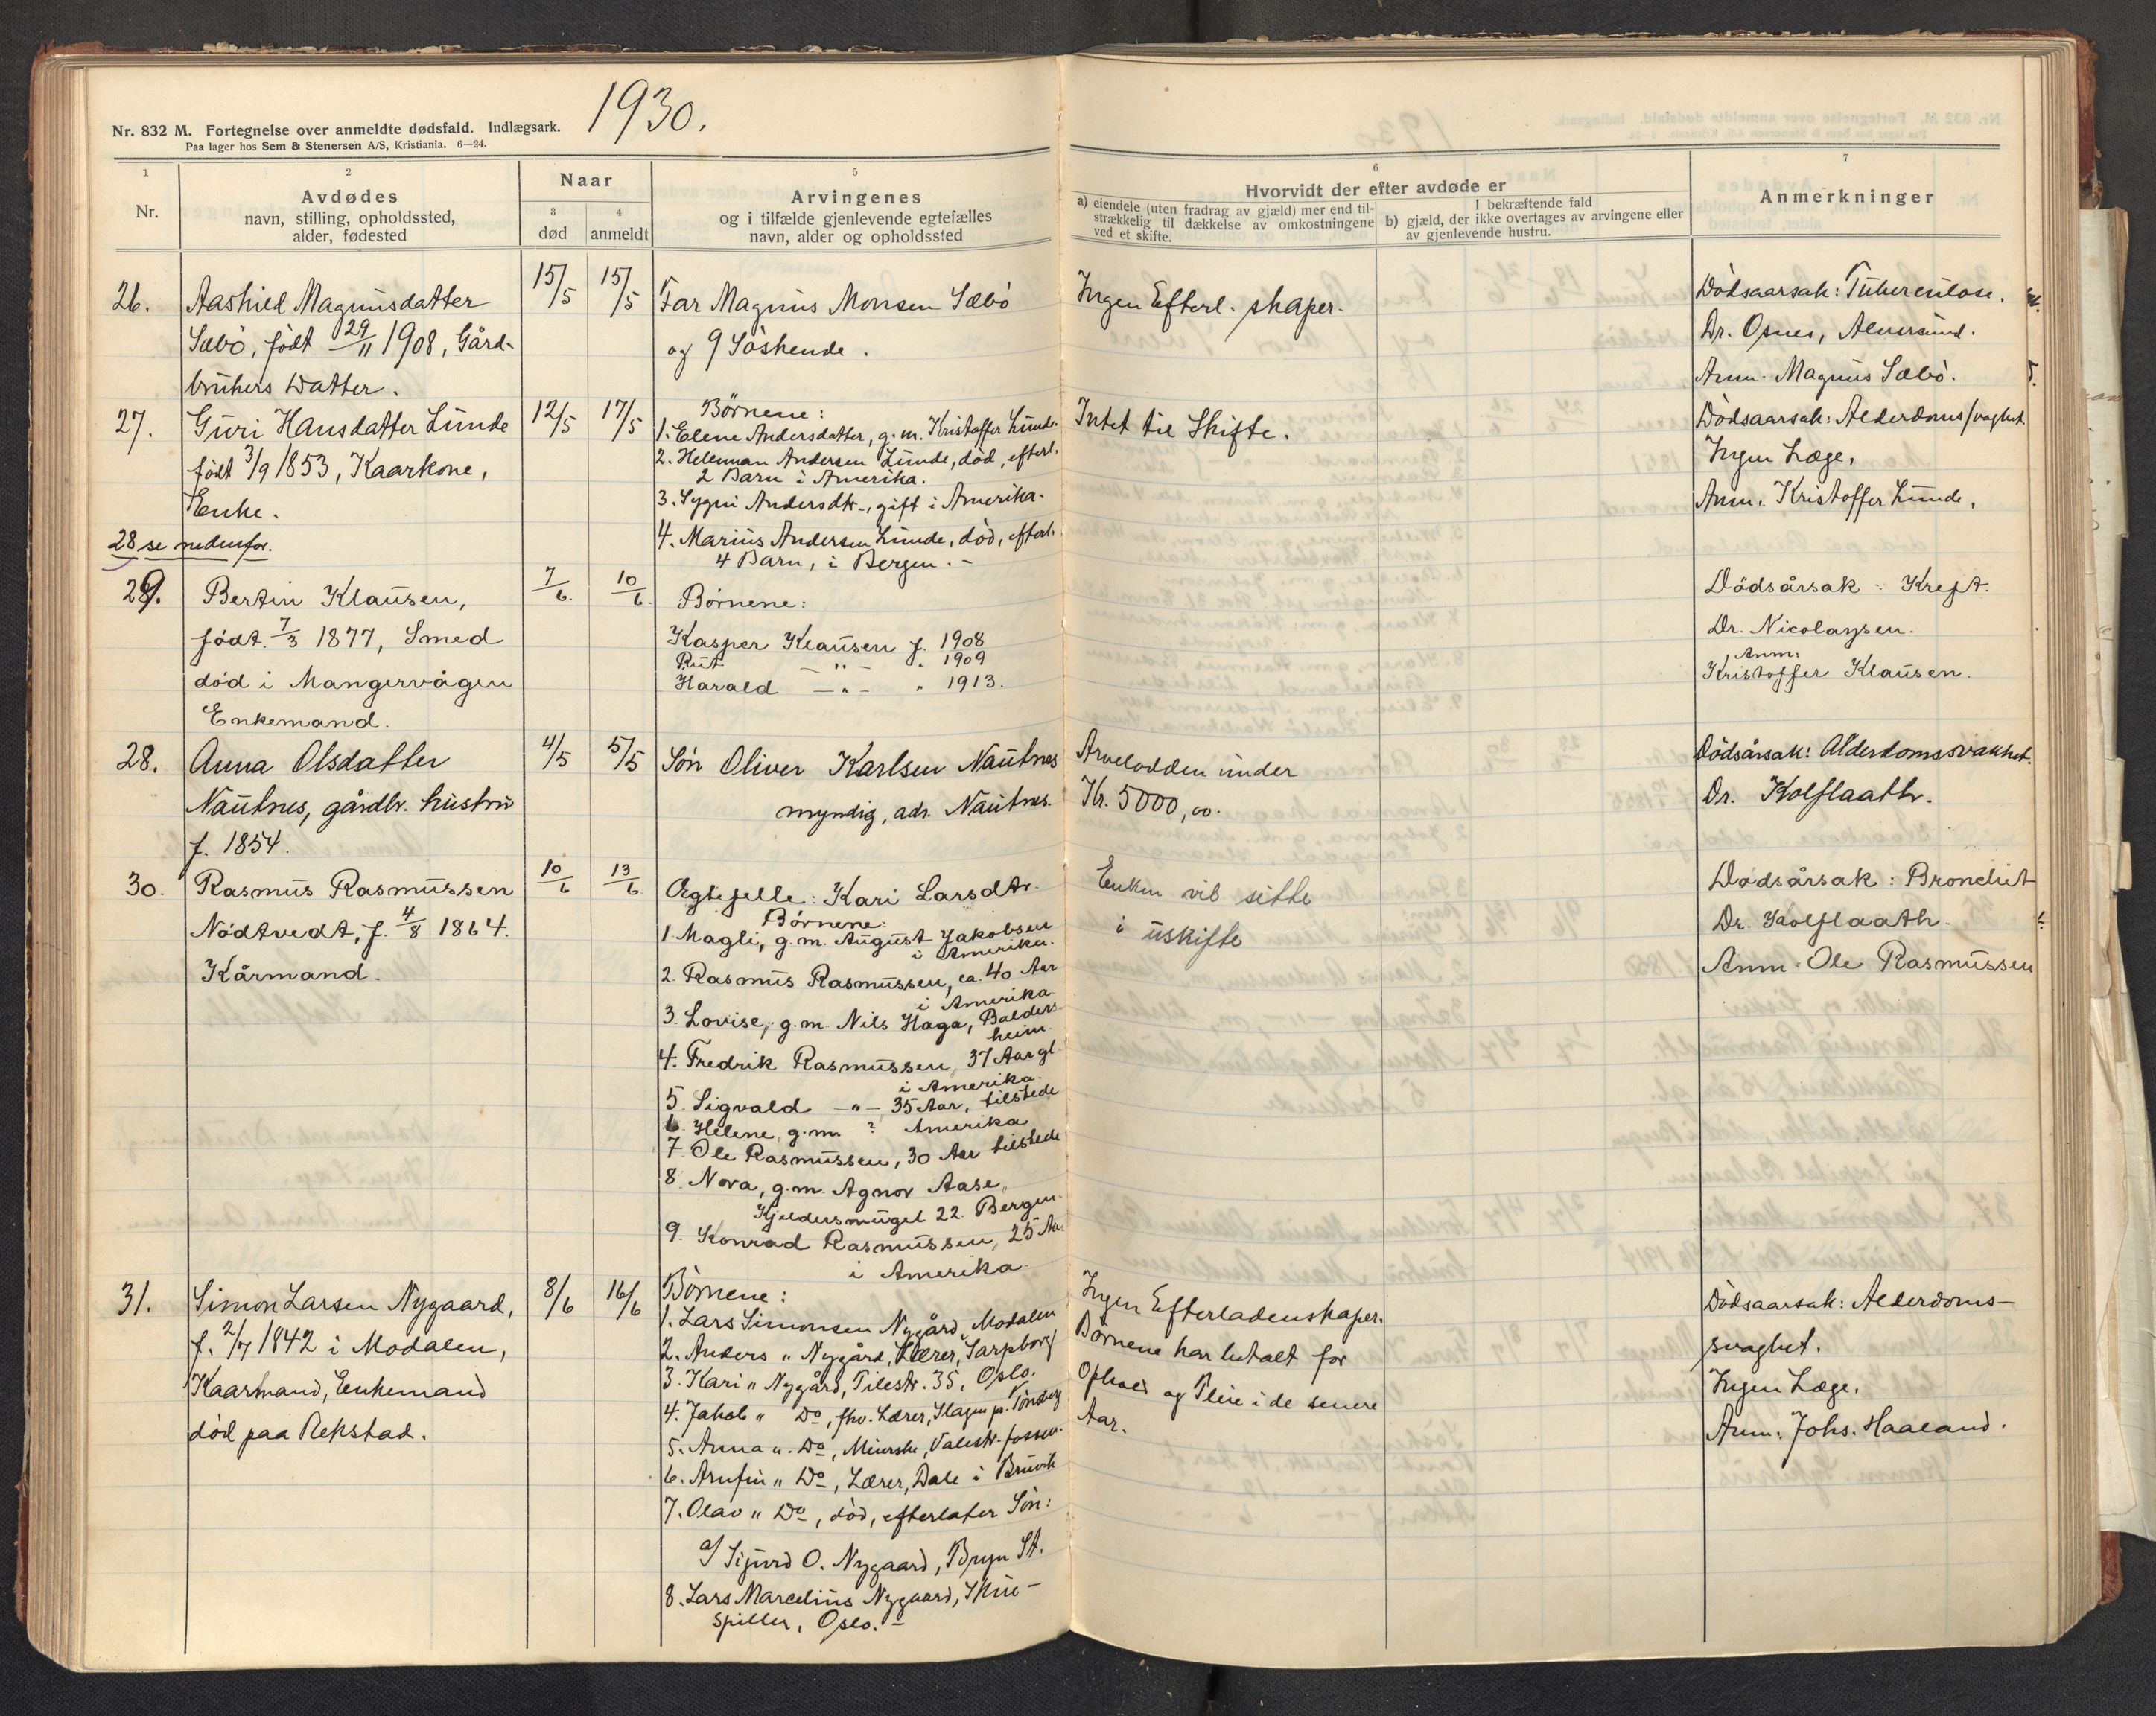 1930.
Nr. 832 M. Fortegnelse over anmeldte dødsfald. Indlægsark.
Paa lager hos Sem & Stenersen A/S, Kristiania. 6—24.
1
Nr.
2
Avdødes
navn, stilling, opholdssted,
alder, fødested
Naar
3
død
4
anmeldt
5
Arvingenes
og i tilfælde gjenlevende egtefælles
navn, alder og opholdssted
6
Hvorvidt der efter avdøde er
a) eiendele (uten fradrag av gjæld) mer end til-
strækkelig til dækkelse av omkostningene
ved et skifte.
I bekræftende fald
b) gjæld, der ikke overtages av arvingene eller
av gjenlevende hustru.
7
Anmerkninger
26.
Aashild Magnusdatter
Sæbö, født 29/11 1908, Gård-
brukers Datter.
15/5
15/5
Far Magnus Monsen Sæbö
og 9 Söskende.
Ingen Efterl. skaper.
Dödsaarsak: Tuberculose.
Dr. Opnes, Alversund.
Anm. Magnus Sæbö.
27.
Guri Hansdatter Lunde
født 3/9 1853, Kaarkone,
Enke.
12/5
17/5
Børnene:
1. Elene Andersdatter, g.m. Kristoffer Lunde.
2. Helenman Andersen Lunde, död, efterl.
2 Barn i Amerika.
3. Sygni Andersdtr., gift i Amerika.
4. Marius Andersen Lunde, död, efterl.
4 Barn, i Bergen. -
Intet til Skifte.
Dödsaarsak: Alderdomssvaghet
Ingen Læge.
Anm. Kristoffer Lunde.
28 se nedenfor.
29.
Bertin Klausen,
født 7/3 1877, Smed
död i Mangervågen
Enkemand.
7/6.
10/6.
Börnene:
Kasper Klausen f. 1908
Rut - " - " 1909
Harald - " - " 1913.
Dödsårsak: Kreft.
Dr. Nicolaysen.
Anm:
Kristoffer Klausen.
28.
Anna Olsdatter
Nautnes, gårdbr. hustru
f. 1854.
4/5
5/5
Sön Oliver Karlsen Nautnes
myndig, adr. Nautnes.
Arvelodden under
Kr. 5000,00.
Dödsårsak: Alderdomssvakhet.
Dr. Kolflaath.
30.
Rasmus Rasmussen
Nödtvedt, f. 4/8 1864.
Kårmand.
10/6
13/6
Ægtefelle: Kari Larsdtr.
Börnene:
1. Magli, g.m. August Jakobsen
i Amerika.
2. Rasmus Rasmussen, ca. 40 Aar
i Amerika
3. Lovise, g.m. Nils Haga, Balders-
heim.
4. Fredrik Rasmussen, 37 Aar gl.
i Amerika.
5. Sigvald - " - 35 Aar, tilstede
6. Helene, g.m. ? Amerika
7. Ole Rasmussen, 30 Aar tilstede
8. Nora, g.m. Agnor Aase,
Kjeldersmuget 22. Bergen.
9. Konrad Rasmussen, 25 Aar
i Amerika.
Enken vil sitte
i uskifte
Dødsårsak: Bronchit
Dr. Kolflaath.
Anm. Ole Rasmussen
31.
Simon Larsen Nygaard,
f. 2/7 1842 i Modalen,
Kaarmand, Enkemand
död paa Rekstad.
8/6
16/6
Börnene:
1. Lars Simonsen Nygård, Modalen
2. Anders " Nygård, Lærer, Sarpsborg
3. Kari " Nygård, Tilestr. 35, Oslo.
4. Jakob " Do, fhv. Lærer, Slagen pr. Tönsberg
5. Anna " Do, Meierske, Valestr.fossen.
6. Arnfin " Do, Lærer, Dale i Bruvik
7. Olav " Do, död, efterlater Sön:
a/ Sigurd O. Nygaard, Bryn St.
8. Lars Marcelius Nygaard, Skue-
spiller, Oslo. -
Ingen Efterladenskaper.
Børnene har betalt for
Ophold og Pleie i de senere
Aar.
Dödsaarsak: Alderdoms-
svaghet.
Ingen Læge.
Anm: Johs. Haaland.